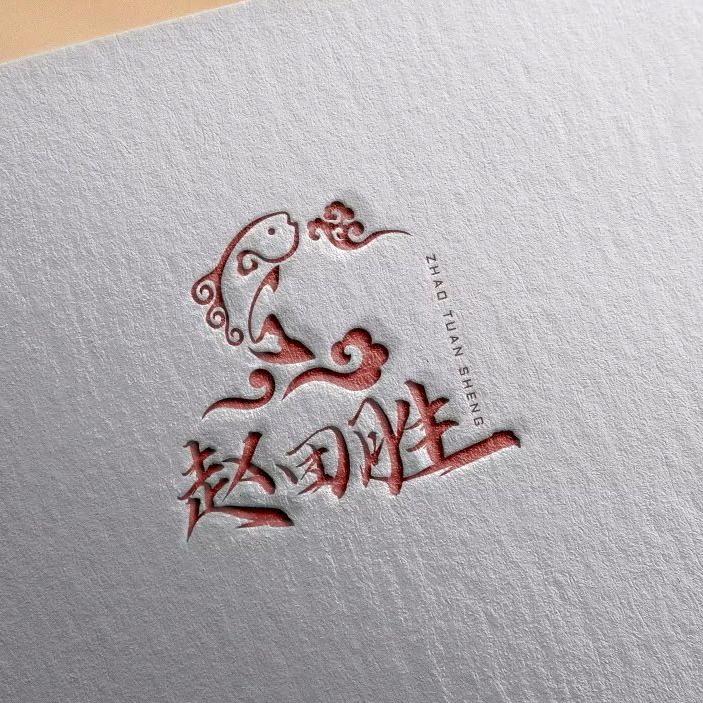 赵团胜
ZHAO TUAN SHENG